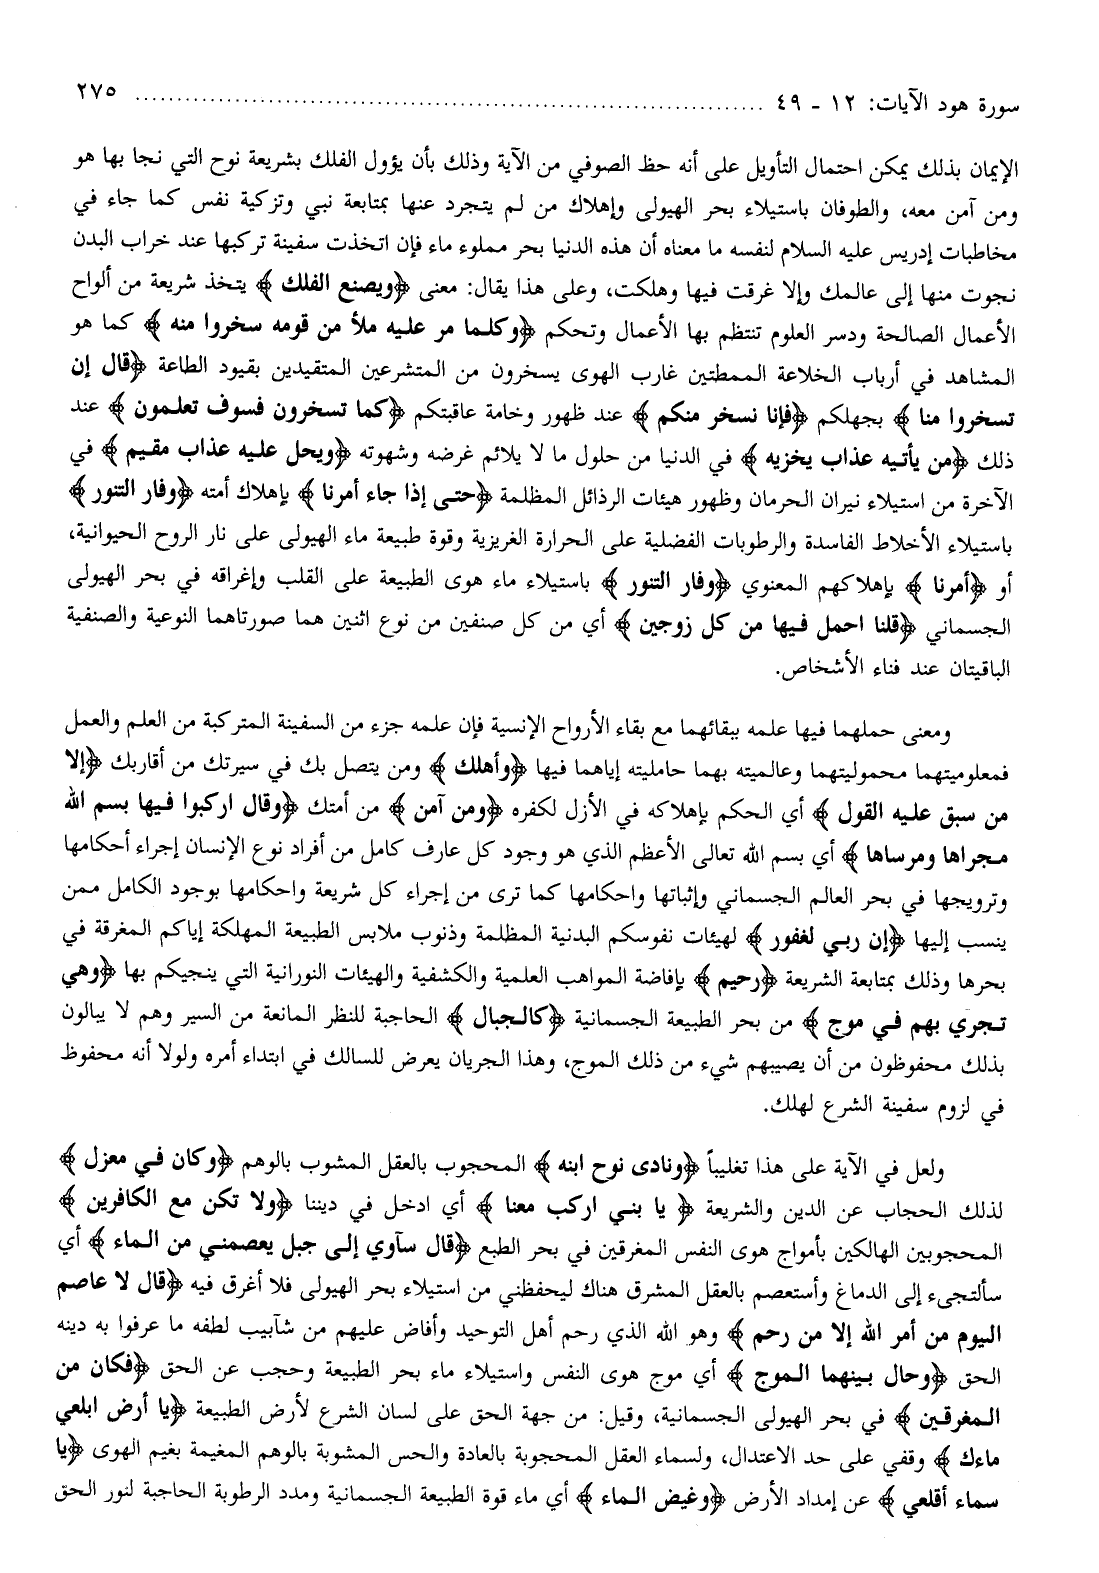 سورة هود الآيات: ١٢ - ٤٩ ................................................ ٢٧٥
الإيمان بذلك يمكن احتمال التأويل على أنه حظ الصوفي من الآية وذلك بأن يؤول الفلك بشريعة نوح التي نجا بها هو
ومن آمن معه، والطوفان باستيلاء بحر الهيولى وإهلاك من لم يتجرد عنها بمتابعة نبي وتزكية نفس كما جاء في
مخاطبات إدريس عليه السلام لنفسه ما معناه أن هذه الدنيا بحر مملوء ماء فإن اتخذت سفينة تركبها عند خراب البدن
نجوت منها إلى عالمك وإلا غرقت فيها وهلكت، وعلى هذا يقال: معنى ﴿ويصنع الفلك﴾ يتخذ شريعة من ألواح
الأعمال الصالحة ودسر العلوم تنتظم بها الأعمال وتحكم ﴿وكلما مر عليه ملأ من قومه سخروا منه﴾ كما هو
المشاهد في أرباب الخلاعة الممطتين غارب الهوى يسخرون من المتشرعين المتقيدين بقيود الطاعة ﴿قال إن
تسخروا منا﴾ بجهلكم ﴿فإنا نسخر منكم﴾ عند ظهور وخامة عاقبتكم ﴿كما تسخرون فسوف تعلمون﴾ عند
ذلك ﴿من يأتيه عذاب يخزيه﴾ في الدنيا من حلول ما لا يلائم غرضه وشهوته ﴿ويحل عليه عذاب مقيم﴾ في
الآخرة من استيلاء نيران الحرمان وظهور هيئات الرذائل المظلمة ﴿حتى إذا جاء أمرنا﴾ بإهلاك أمته ﴿وفار التنور﴾
باستيلاء الأخلاط الفاسدة والرطوبات الفضلية على الحرارة الغريزية وقوة طبيعة ماء الهيولى على نار الروح الحيوانية،
أو ﴿أمرنا﴾ بإهلاكهم المعنوي ﴿وفار التنور﴾ باستيلاء ماء هوى الطبيعة على القلب وإغراقه في بحر الهيولى
الجسماني ﴿قلنا احمل فيها من كل زوجين﴾ أي من كل صنفين من نوع اثنين هما صورتاهما النوعية والصنفية
الباقيتان عند فناء الأشخاص.
ومعنى حملهما فيها علمه ببقائهما مع بقاء الأرواح الإنسية فإن علمه جزء من السفينة المتركبة من العلم والعمل
فمعلوميتهما محموليتهما وعالميته بهما حامليته إياهما فيها ﴿وأهلك﴾ ومن يتصل بك في سيرتك من أقاربك ﴿إلا
من سبق عليه القول﴾ أي الحكم بإهلاكه في الأزل لكفره ﴿ومن آمن﴾ من أمتك ﴿وقال اركبوا فيها بسم الله
مجراها ومرساها﴾ أي بسم الله تعالى الأعظم الذي هو وجود كل عارف كامل من أفراد نوع الإنسان إجراء أحكامها
وترويجها في بحر العالم الجسماني وإثباتها واحكامها كما ترى من إجراء كل شريعة واحكامها بوجود الكامل ممن
ينسب إليها ﴿إن ربي لغفور﴾ لهيئات نفوسكم البدنية المظلمة وذنوب ملابس الطبيعة المهلكة إياكم المغرقة في
بحرها وذلك بمتابعة الشريعة ﴿رحيم﴾ بإفاضة المواهب العلمية والكشفية والهيئات النورانية التي ينجيكم بها ﴿وهي
تجري بهم في موج﴾ من بحر الطبيعة الجسمانية ﴿كالجبال﴾ الحاجبة للنظر المانعة من السير وهم لا يبالون
بذلك محفوظون من أن يصيبهم شيء من ذلك الموج، وهذا الجريان يعرض للسالك في ابتداء أمره ولولا أنه محفوظ
في لزوم سفينة الشرع لهلك.
ولعل في الآية على هذا تغليباً ﴿ونادى نوح ابنه﴾ المحجوب بالعقل المشوب بالوهم ﴿وكان في معزل﴾
لذلك الحجاب عن الدين والشريعة ﴿يا بني اركب معنا﴾ أي ادخل في ديننا ﴿ولا تكن مع الكافرين﴾
المحجوبين الهالكين بأمواج هوى النفس المغرقين في بحر الطبع ﴿قال سآوي إلى جبل يعصمني من الماء﴾ أي
سألتجىء إلى الدماغ وأستعصم بالعقل المشرق هناك ليحفظني من استيلاء بحر الهيولى فلا أغرق فيه ﴿قال لا عاصم
اليوم من أمر الله إلا من رحم﴾ وهو الله الذي رحم أهل التوحيد وأفاض عليهم من شآبيب لطفه ما عرفوا به دينه
الحق ﴿وحال بينهما الموج﴾ أي موج هوى النفس واستيلاء ماء بحر الطبيعة وحجب عن الحق ﴿فكان من
المغرقين﴾ في بحر الهيولى الجسمانية، وقيل: من جهة الحق على لسان الشرع لأرض الطبيعة ﴿يا أرض ابلعي
ماءك﴾ وقفي على حد الاعتدال، ولسماء العقل المحجوبة بالعادة والحس المشوبة بالوهم المغيمة بغيم الهوى ﴿يا
سماء أقلعي﴾ عن إمداد الأرض ﴿وغيض الماء﴾ أي ماء قوة الطبيعة الجسمانية ومدد الرطوبة الحاجبة لنور الحق